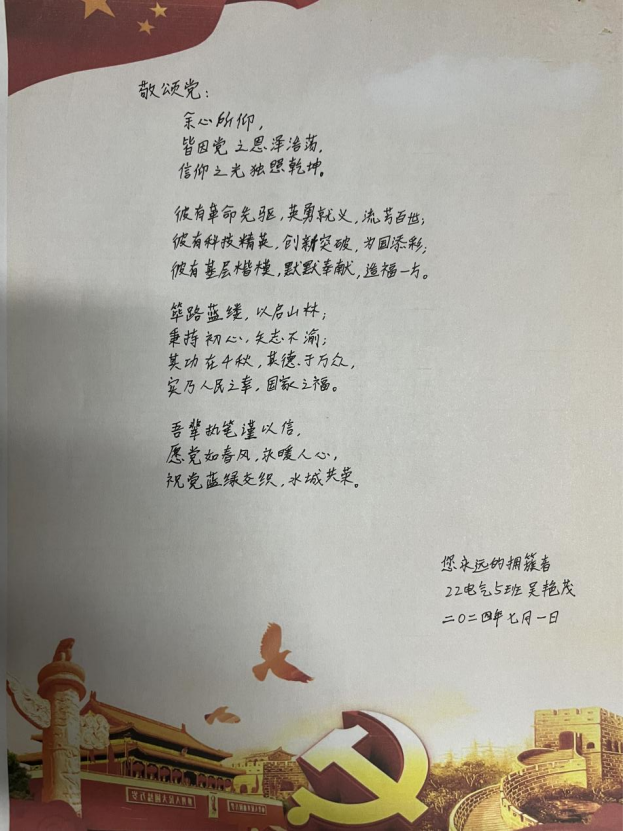 敬颂党：
余心所仰，
皆因党之恩泽浩荡，
信仰之光独照乾坤。
彼有革命先驱，英勇就义，流芳百世；
彼有科技精英，创新突破，为国添彩；
彼有基层楷模，默默奉献，造福一方。
筚路蓝缕，以启山林；
秉持初心，矢志不渝；
其功在千秋，其德于万众，
实乃人民之幸，国家之福。
吾辈执笔谨以信，
愿党如春风，永暖人心，
祝党蓝绿交织，水城共荣。
您永远的拥簇者
22电气5班 吴艳茂
二〇二四年七月一日